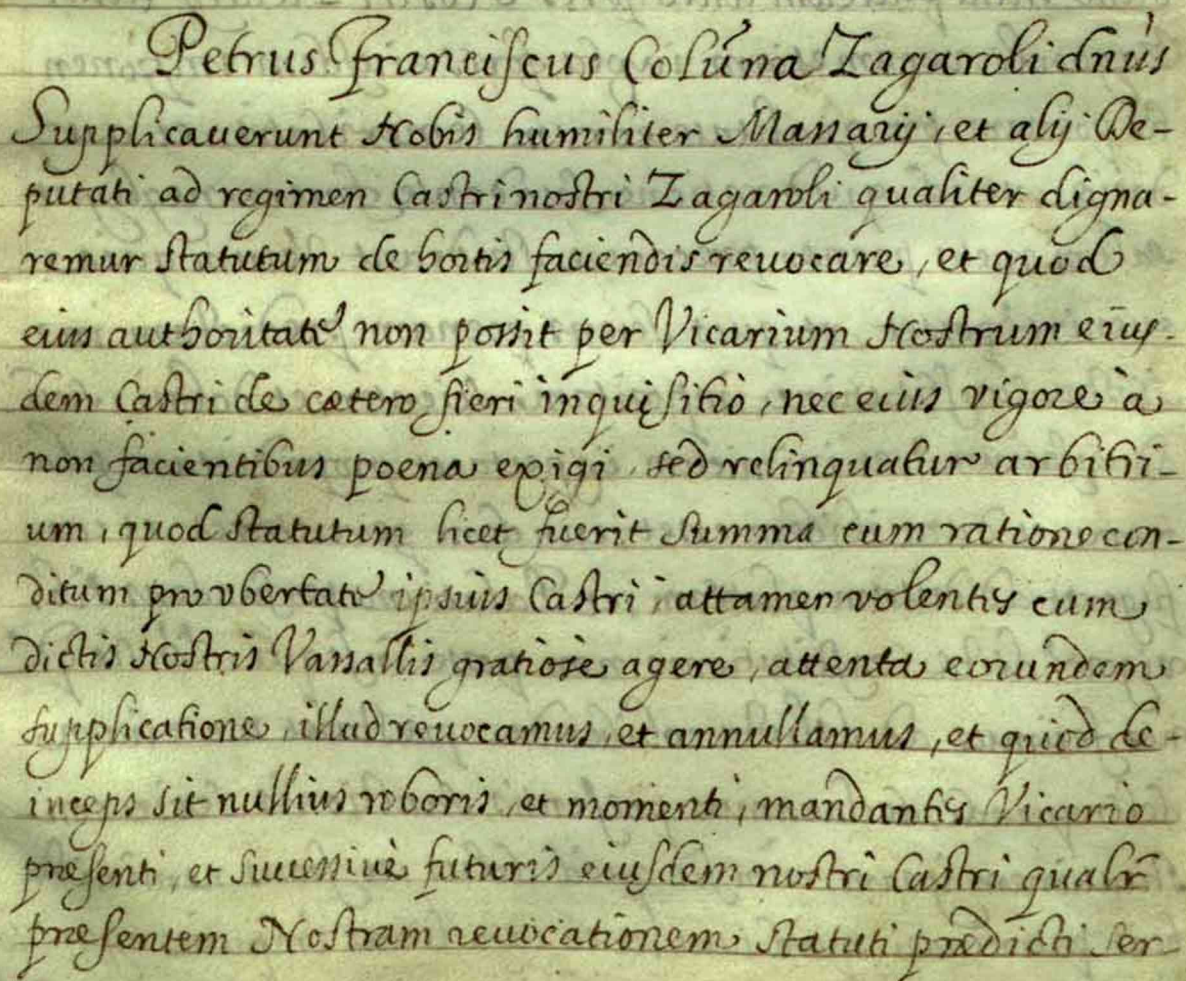 Petrus Franciscus Colūna Zagaroli dnũs
Supplicaverunt Nobis humiliter Massarij, et alij De-
putati ad regimen Castri nostri Zagaroli qualiter digna-
remur statutum de hortis faciendis revocare, et quod
eius authoritate non possit per Vicarium Nostrum eius-
dem Castri de cætero fieri inquisitio, nec eius vigore à
non facientibus poena exigi sed relinquatur arbitri-
um, quod statutum licet fuerit summa cum ratione con-
ditum pro vbertate ipsius Castri, attamen volentes cum
dictis Nostris Vassallis gratiose agere, attenta eorundem
supplicatione, illud revocamus, et annullamus, et quod de-
inceps sit nullius roboris, et momenti, mandantes Vicario
præsenti, et successivè futuris eiusdem nostri Castri qualr̃
præsentem Nostram revocationem statuti prædicti ser